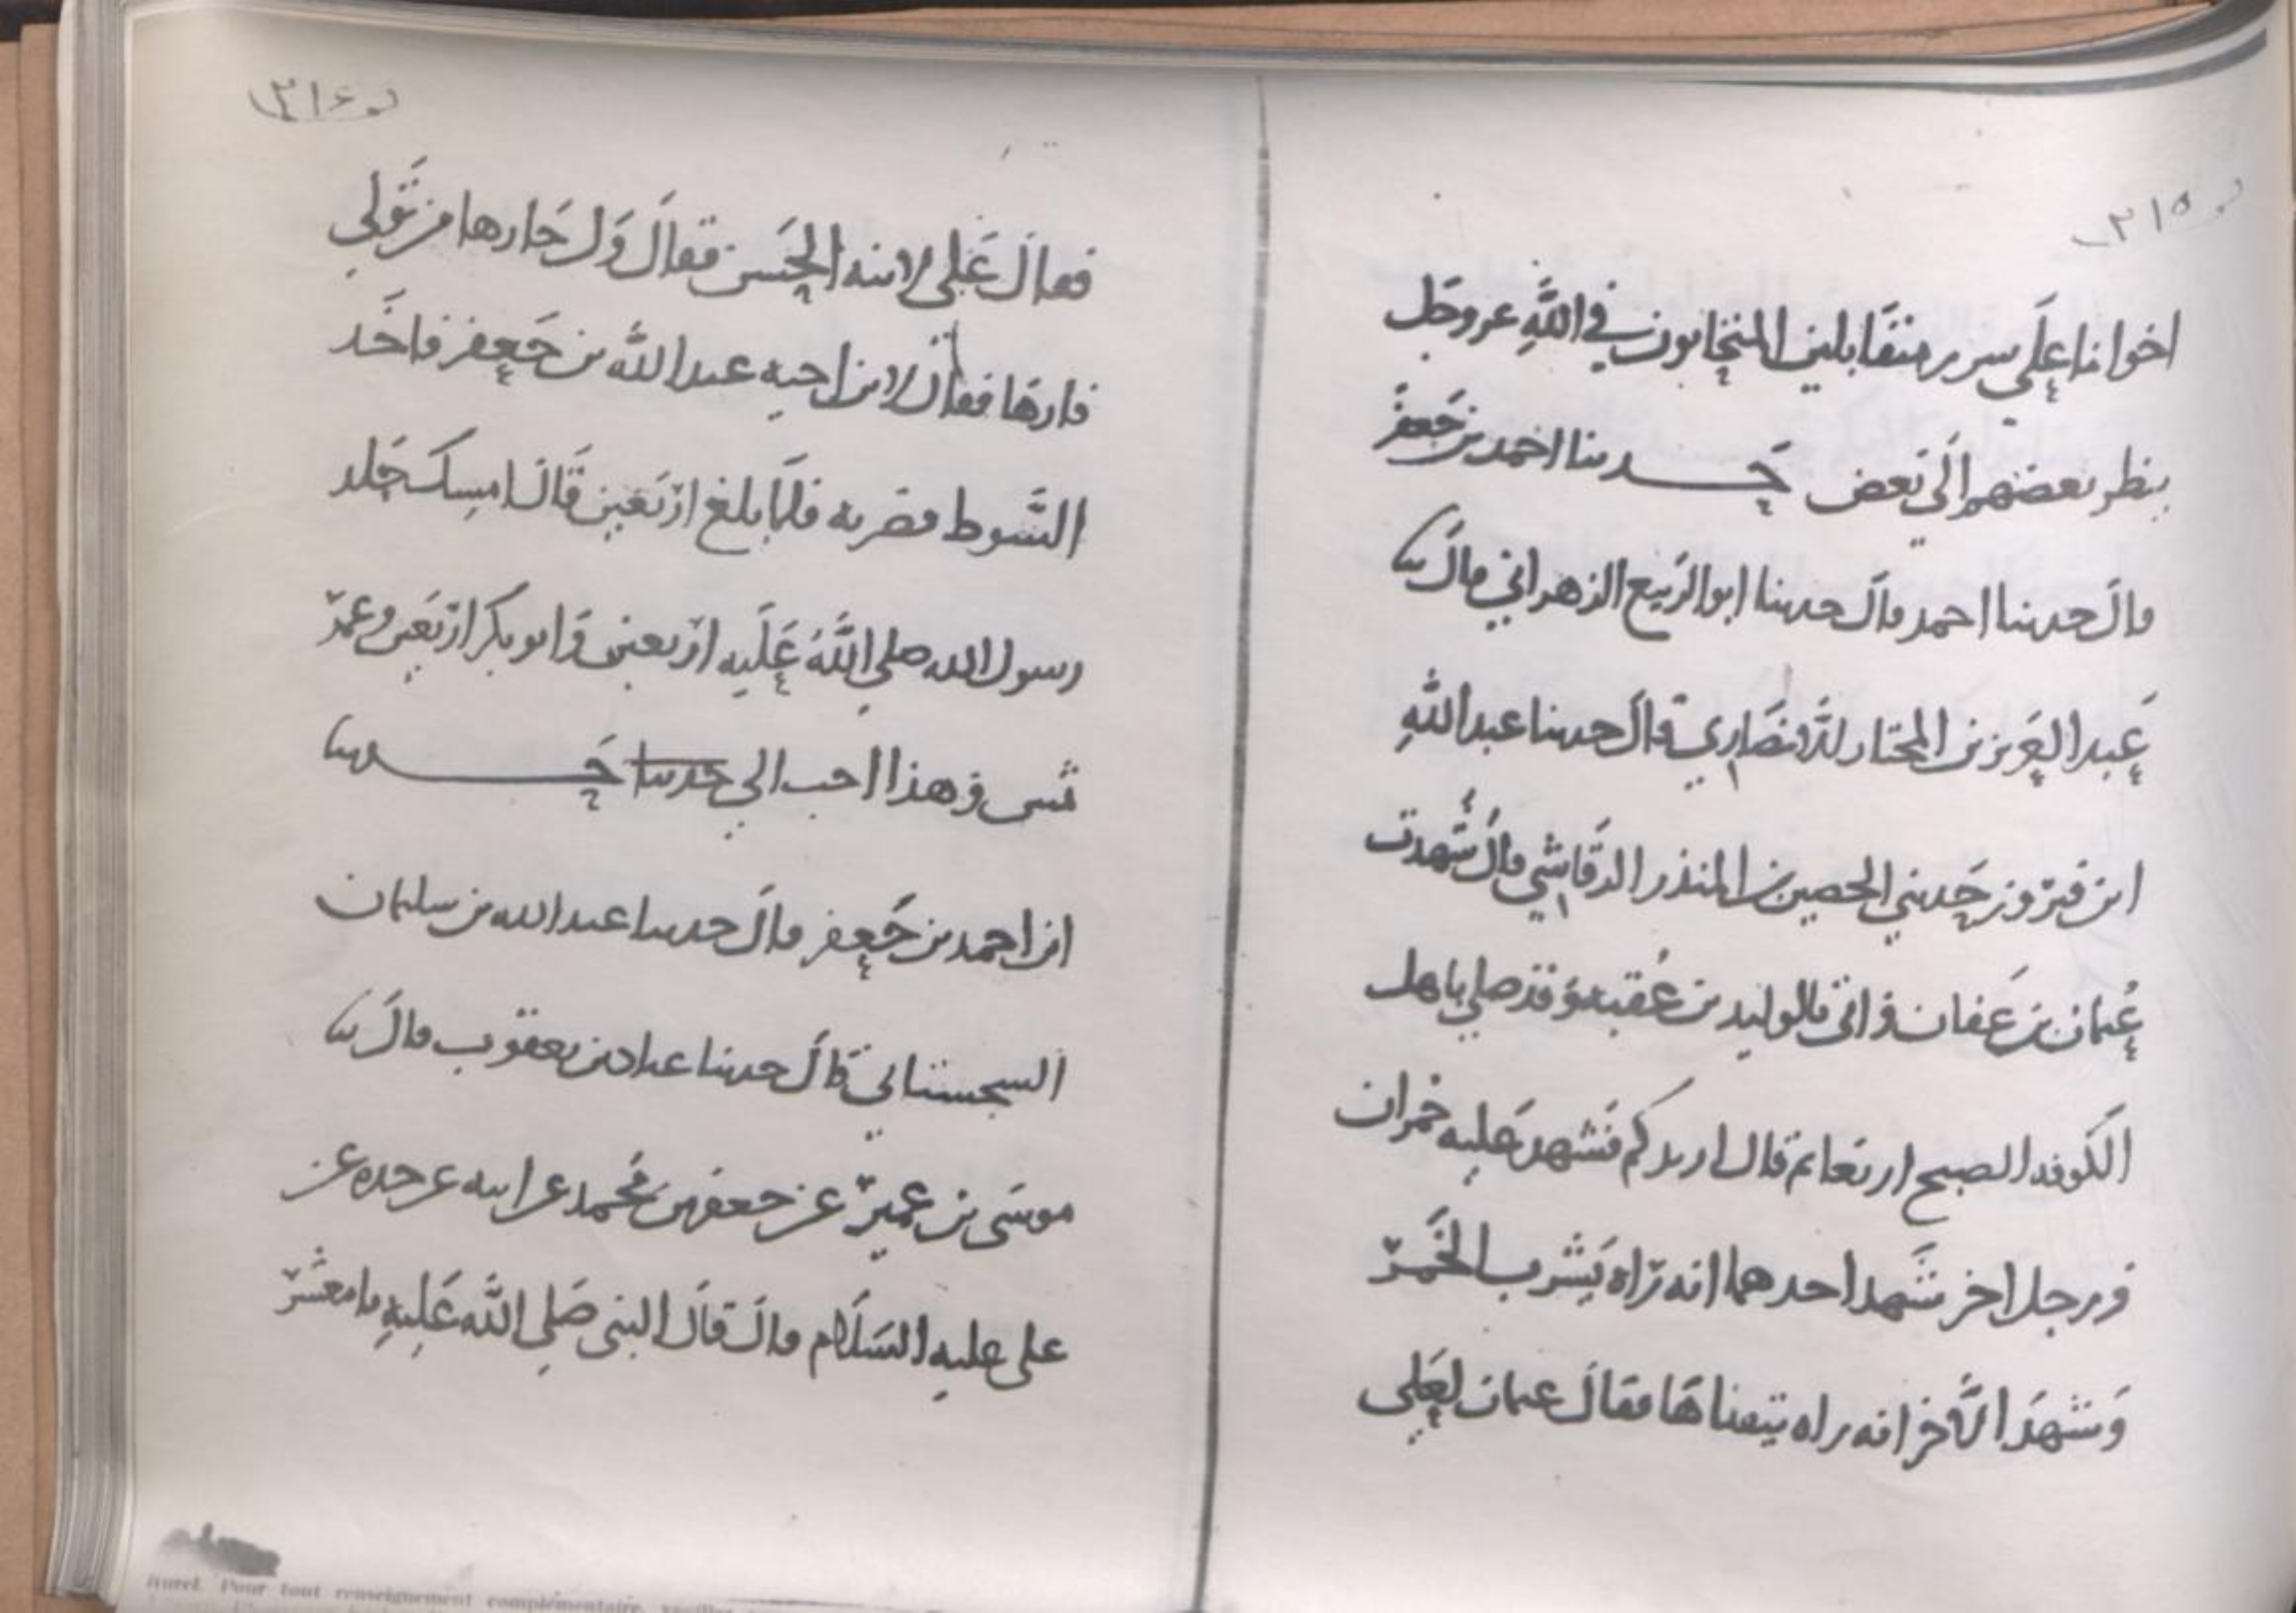 ٢١٥
اخوانا على سرر متقابلين المتحابون في الله عز وجل
ينظر بعضهم الى بعض حدثنا احمد بن جعفر
قال حدثنا احمد قال حدثنا ابو الربيع الزهراني قال ثنا
عبد العزيز بن المختار الانصاري قال حدثنا عبد الله
ابن فيروز حدثني الحصين بن المنذر الرقاشي قال شهدت
عثمان بن عفان و اتى بالوليد بن عقبة و قد صلى باهل
الكوفة الصبح اربعا ثم قال ازيدكم فشهد عليه حمران
و رجل اخر شهد احدهما انه راه يشرب الخمر
و شهد الاخر انه راه يتقياها فقال عثمان لعلي
٢١٦
فقال علي لابنه الحسن فقال ول حارها من تولى
قارها فقال لابن اخيه عبد الله بن جعفر فاخذ
السوط فضربه فلما بلغ اربعين قال امسك جلد
رسول الله صلى الله عليه اربعين و ابو بكر اربعين و عمر
ثمنين و هذا احب الي حدثنا حدثنا
ابن احمد بن جعفر قال حدثنا عبد الله بن سليمان
السجستاني قال حدثنا عباد بن يعقوب قال ثنا
موسى بن عمير عن جعفر بن محمد عن ابيه عن جده عن
علي عليه السلام قال قال النبي صلى الله عليه يا معشر
Pour tout renseignement complémentaire,